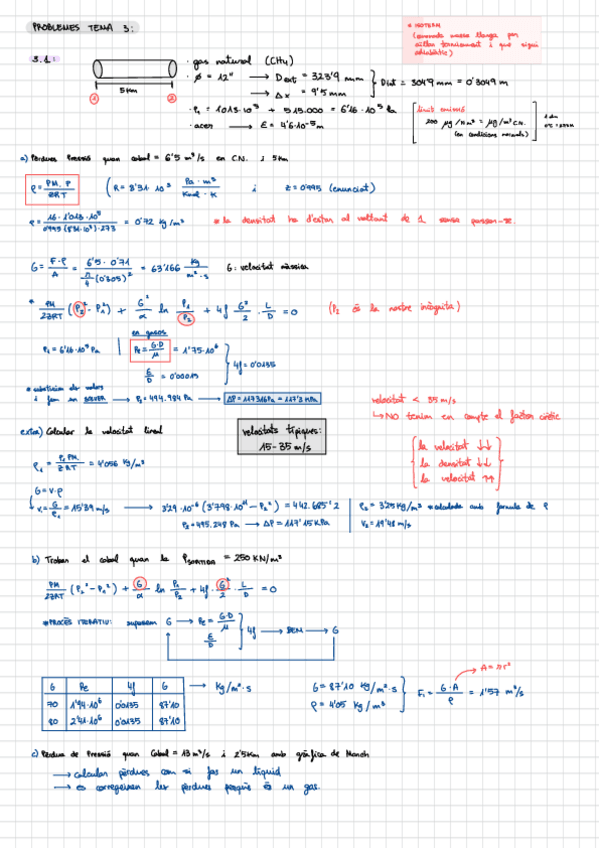 PROBLEMES TEMA 3:
* ISOTERM
3.1:
· gas natural (CH4)
· ϕ = 12" → Dext = 323'9 mm
→ Δx = 9'5 mm
Dint = 304'9 mm = 0'3049 m
5 Km
1 2
· P1 = 1013·10^5 + 515.000 = 6'16·10^5 Pa
· acer → ε = 4'6·10^-5 m
límit emissió
200 μg/Nm³ = μg/m³ C.N.
(en condicions normals)
a) Pèrdues Pressió quan cabal = 6'5 m³/s en C.N. i 5 Km
ρ = PM·P / ZRT
(R = 8'31·10³ Pa·m³ / Kmol·K i Z = 0'995 (enunciat)
ρ = 16·1'013·10^5 / 0'995(8'31·10³)·273 = 0'72 Kg/m³
* la densitat ha d'estar al voltant de 1 sense passar-se.
G = F·ρ / A = 6'5·0'71 / π/4 (0'305)² = 63'166 Kg / m²·s G: velocitat màssica
* PM / 2ZRT (P2² - P1²) + G² / α ln P1 / P2 + 4f G² / 2 · L / D = 0 (P2 és la nostre incògnita)
en gasos
P1 = 6'16·10^5 Pa
Re = G·D / μ = 1'75·10^6
ε / D = 0'00015
4f = 0'0135
* substituïm els valors
i fem en SOLVER → P2 = 494.984 Pa → ΔP = 117316 Pa = 117'3 KPa
velocitat < 35 m/s
↳ NO tenim en compte el factor cinètic
extra) Calcular la velocitat lineal
velocitats típiques:
15-35 m/s
la velocitat ↓↓
la densitat ↓↓
la velocitat ↑↑
ρ1 = P1 PM / ZRT = 4'056 Kg/m³
G = v·ρ
v1 = G / ρ1 = 15'39 m/s → 3'29·10^-6 (3'798·10^11 - P2²) = 442.685'2
P2 = 495.248 Pa → ΔP = 117'15 KPa
ρ2 = 3'25 Kg/m³ * calculada amb formula de ρ
V2 = 19'41 m/s
b) Trobar el cabal quan la PSORTIDA = 250 KN/m²
PM / 2ZRT (P2² - P1²) + G² / α ln P1 / P2 + 4f · G² / 2 · L / D = 0
* PROCÉS ITERATIU: suposem G → Re = G·D / μ
ε / D
4f → BEM → G
G Re 4f G → Kg/m²·s
70 1'94·10^6 0'0135 87'10
80 2'41·10^6 0'0135 87'10
G = 87'10 Kg/m²·s
ρ = 4'05 Kg/m³
F1 = G·A / ρ = 1'57 m³/s
A = πr²
c) Pèrdua de Pressió quan Cabal = 13 m³/s i 2'5 Km amb gràfica de
→ calcular pèrdues com si fos un líquid
→ es corregeixen les pèrdues perquè és un gas.